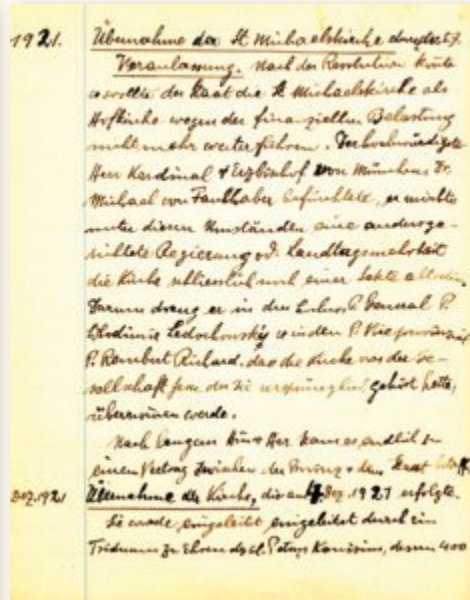 1921. Übernahme der St Michaelskirche durch die
Veranlassung. Nach der Revolution konnte
u wollte der Staat die St Michaelskirche als
Hofkirche wegen der finanziellen Belastung
nicht mehr weiterführen. Der hochwürdigste
Herr Kardinal + Erzbischof von München, Dr
Michael von Faulhaber befürchtete, es möchte
unter diesen Umständen eine andersge-
richtete Regierung od. Landtagsmehrheit
die Kirche schliesslich noch einer Sekte
Darum drang er in den General P.
Ledochowsky u in den P. Provinzial
P. Rembert Richard, dass die Kirche von der Ge-
sellschaft Jesu der sie ursprünglich gehört hatte,
übernommen werde.
Nach langem Hin + Her kam es endlich zu
einem Vertrag zwischen der Provinz + dem Staat
Dez. 1921 Übernahme der Kirche, die am Dez. 1921 erfolgte.
Sie wurde eingeleitet eingeleitet durch ein
Triduum zu Ehren des hl. Petrus Kanisius, dessen 400